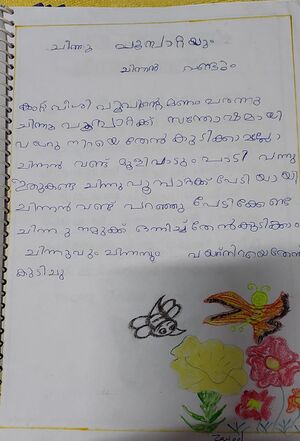 ചിന്നു പൂമ്പാറ്റയും
ചിന്നൻ വണ്ടും
കാറ്റ് വീശി പൂവിന്റെ മണം പരന്നു
ചിന്നു പൂമ്പാറ്റക്ക് സന്തോഷമായി
വയറു നിറയെ തേൻ കുടിക്കാമല്ലോ
ചിന്നൻ വണ്ട് മൂളിപ്പാട്ടും പാടി വന്നു
ഇതുകണ്ട ചിന്നുപൂമ്പാറ്റക്ക് പേടി യായി
ചിന്നൻവണ്ട് പറഞ്ഞു പേടിക്കേണ്ട
ചിന്നു നമുക്ക് ഒന്നിച്ച് തേൻകുടിക്കാം
ചിന്നുവും ചിന്നനും വയർനിറയെതേൻ
കുടിച്ചു